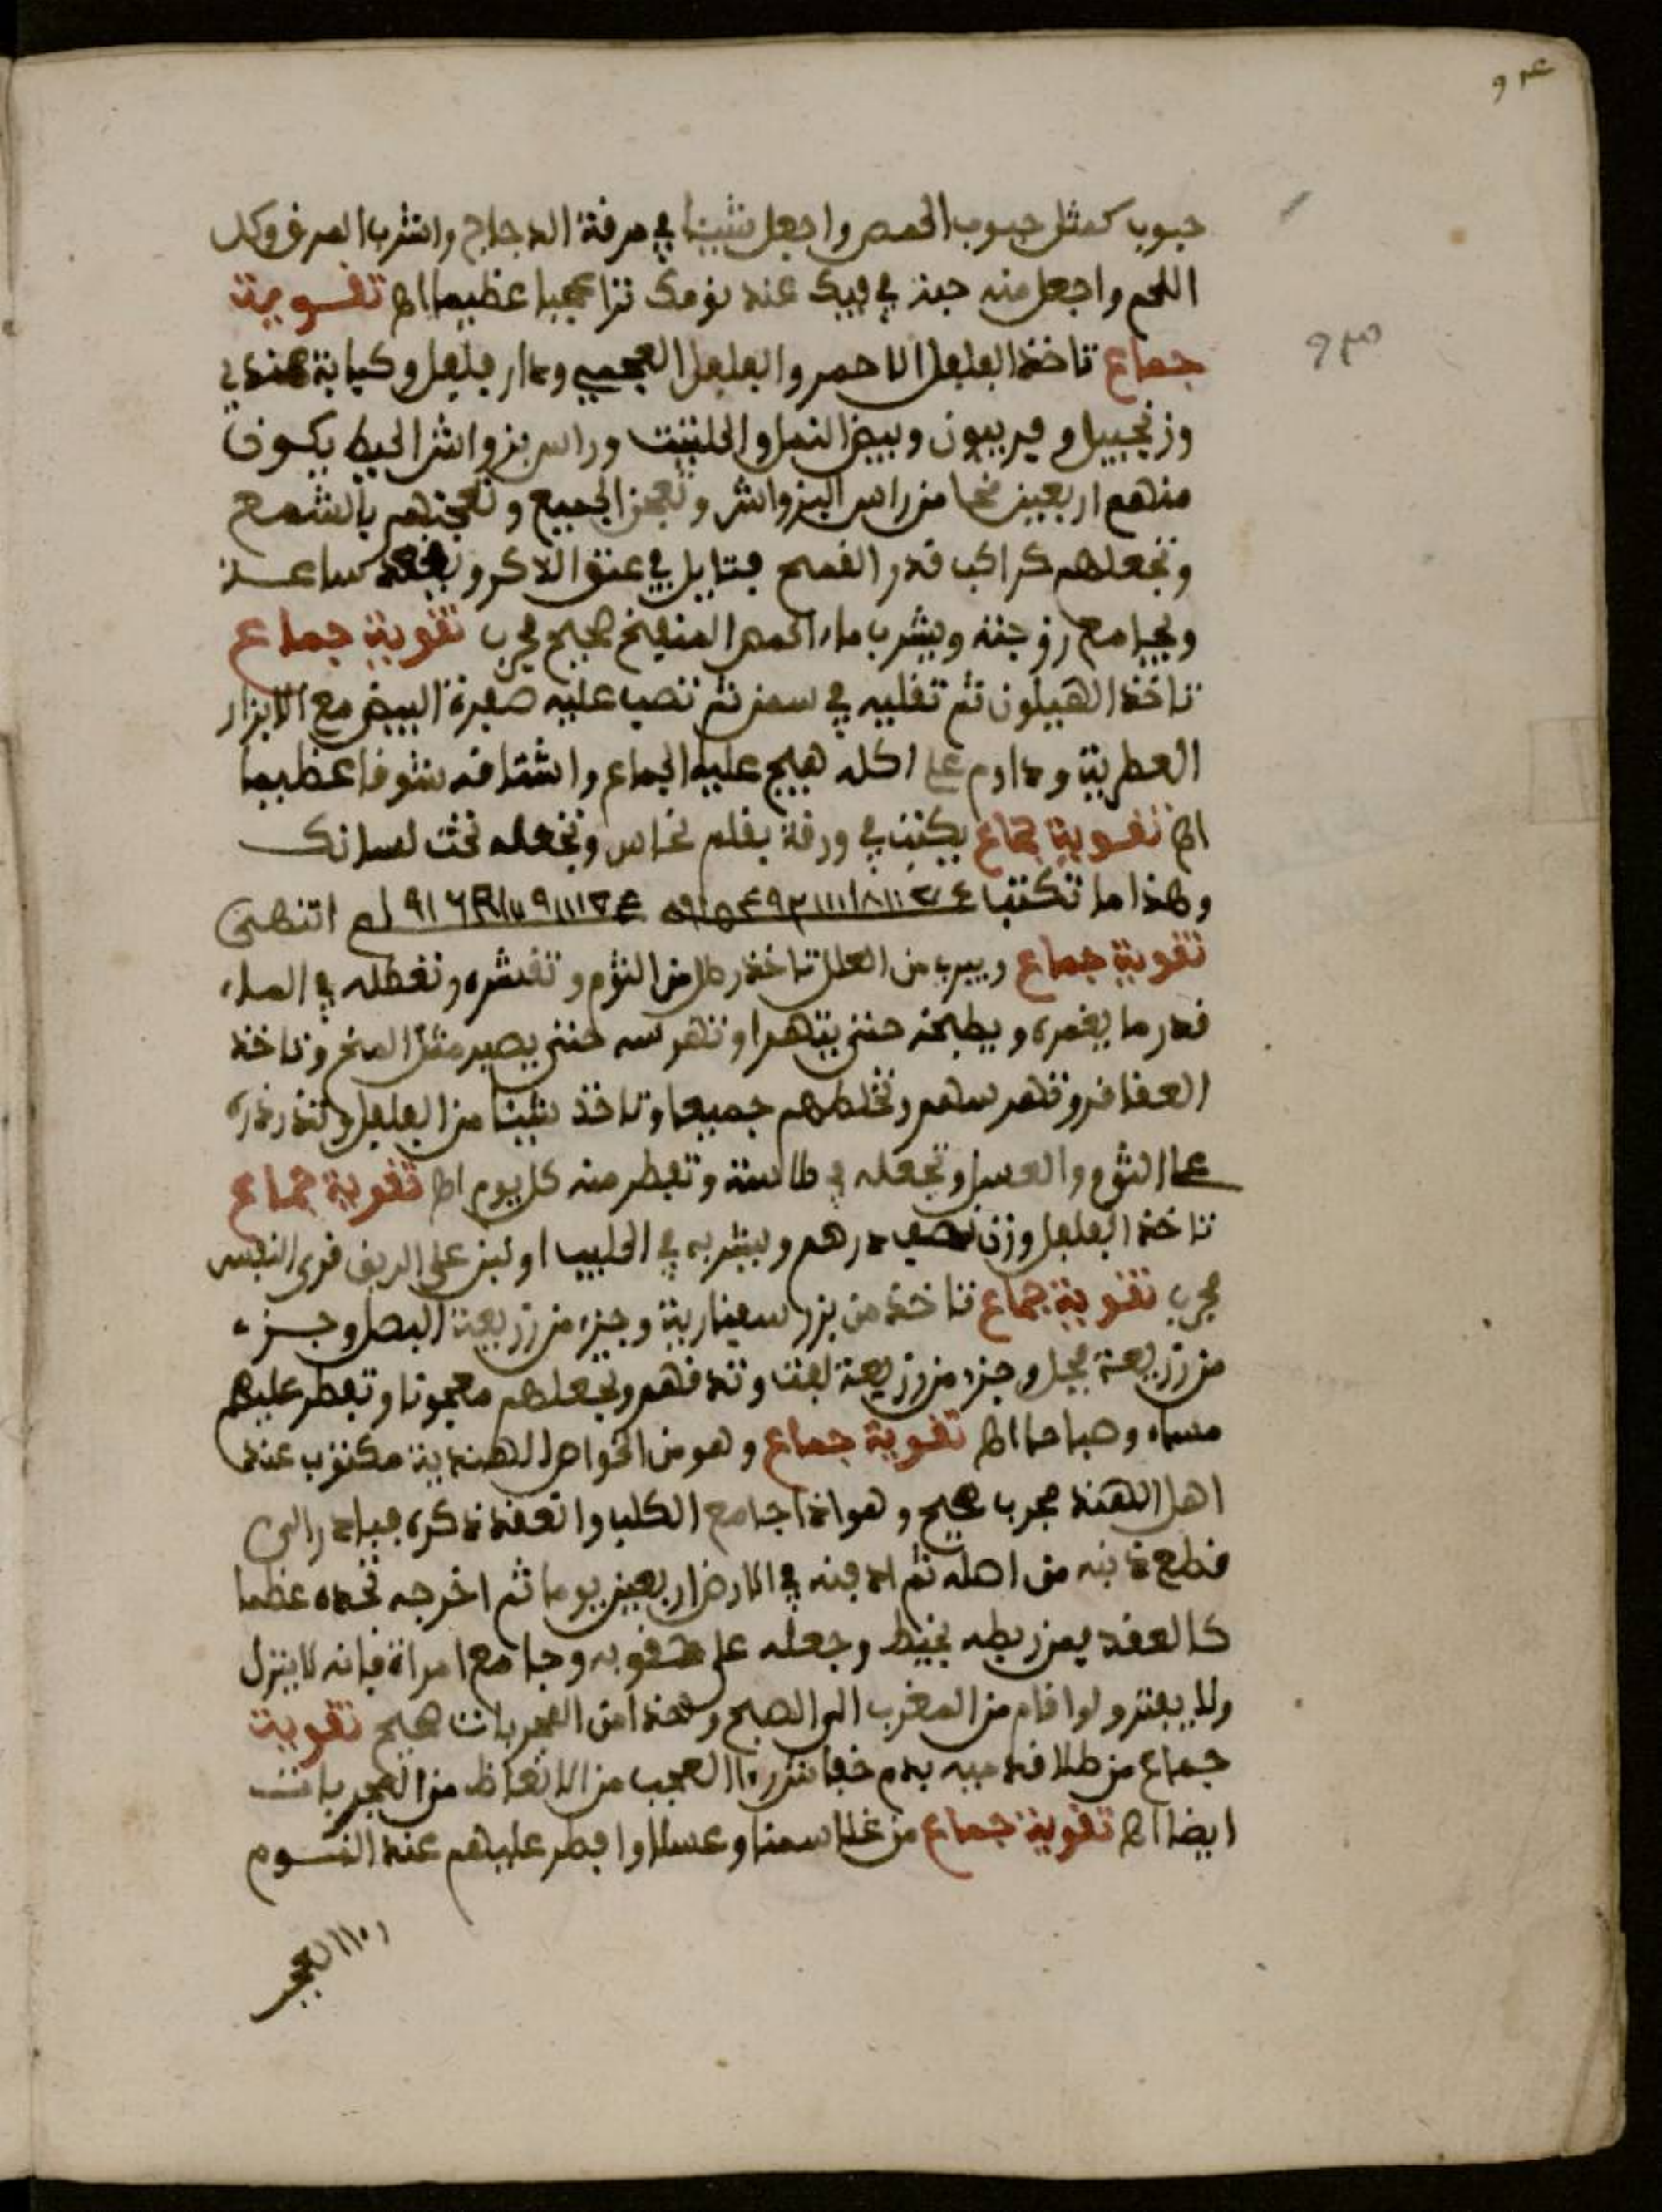 حبوب كمثل حبوب الحمص واجعل شيئا في مرقة الدجاج واشرب المرق وكل
اللحم واجعل منه حبة في فيك عند نومك ترا عجبا عظيما اه تقوية
جماع تاخذ الفلفل الاحمر والفلفل العجمي ودار فلفل وكبابة هندي
وزنجبيل وفربيون وبيض النمل والحلتيت وراس بزواش الحيط يكون
منهم اربعين مخا من راس البزواش وتعجن الجميع وتعجنهم بالشمع
وتجعلهم كراكب قدر القمح فتايل في عنق الاكر ويقعد ساعة
ويجامع زوجته ويشرب ماء الحمص المنقيع صحيح مجرب تقوية جماع
تاخذ الهيلون ثم تقليه في سمن ثم تصب عليه صفرة البيض مع الابزار
العطرية وداوم على اكله هيج عليه الجماع واشتاقه شوقا عظيما
اه تقوية جماع يكتب في ورقة بقلم نحاس وتجعله تحت لسانك
وهذا ما تكتب انتهى
تقوية جماع ويبرى من العلل تاخذ رطل من الثوم وتقشره وتغطله في الماء
قدر ما يغمره ويطبخه حتى يتهرا وتهرسه حتى يصير مثل المخ وتاخذ
العقاقر وتهرسهم وتخلطهم جميعا وتاخذ شيئا من الفلفل وتدردره
على الثوم والعسل وتجعله في طاسة وتفطر منه كل يوم اه تقوية جماع
تاخذ الفلفل وزن نصف درهم ويشربه في الحليب او لبن على الريق قوى النفس
مجرب تقوية جماع تاخذ من بزر سفنارية وجزء من زريعة البصل وجزء
من زريعة فجل وجزء من زريعة لفت وتدقهم وتجعلهم معجونا وتفطر عليهم
مساء وصباحا اه تقوية جماع وهو من الخواص الهندية مكتوب عند
اهل الهند مجرب صحيح وهو اذا جامع الكلب وانعقد ذكره فبادر الى
قطع ذنبه من اصله ثم ادفنه في الارض اربعين يوما ثم اخرجه تجده عظما
كالعقد فمن ربطه بخيط وجعله على حقوبه وجامع امراة فانه لا ينزل
ولا يفتر ولو اقام من المغرب الى الصبح وهذا من المجربات صحيح تقوية
جماع من طلا قدميه بدم خفاش را العجب من الانعاظ من المجربات
ايضا اه تقوية جماع من غلا سمنا وعسلا وافطر عليهم عند النوم
را العجب